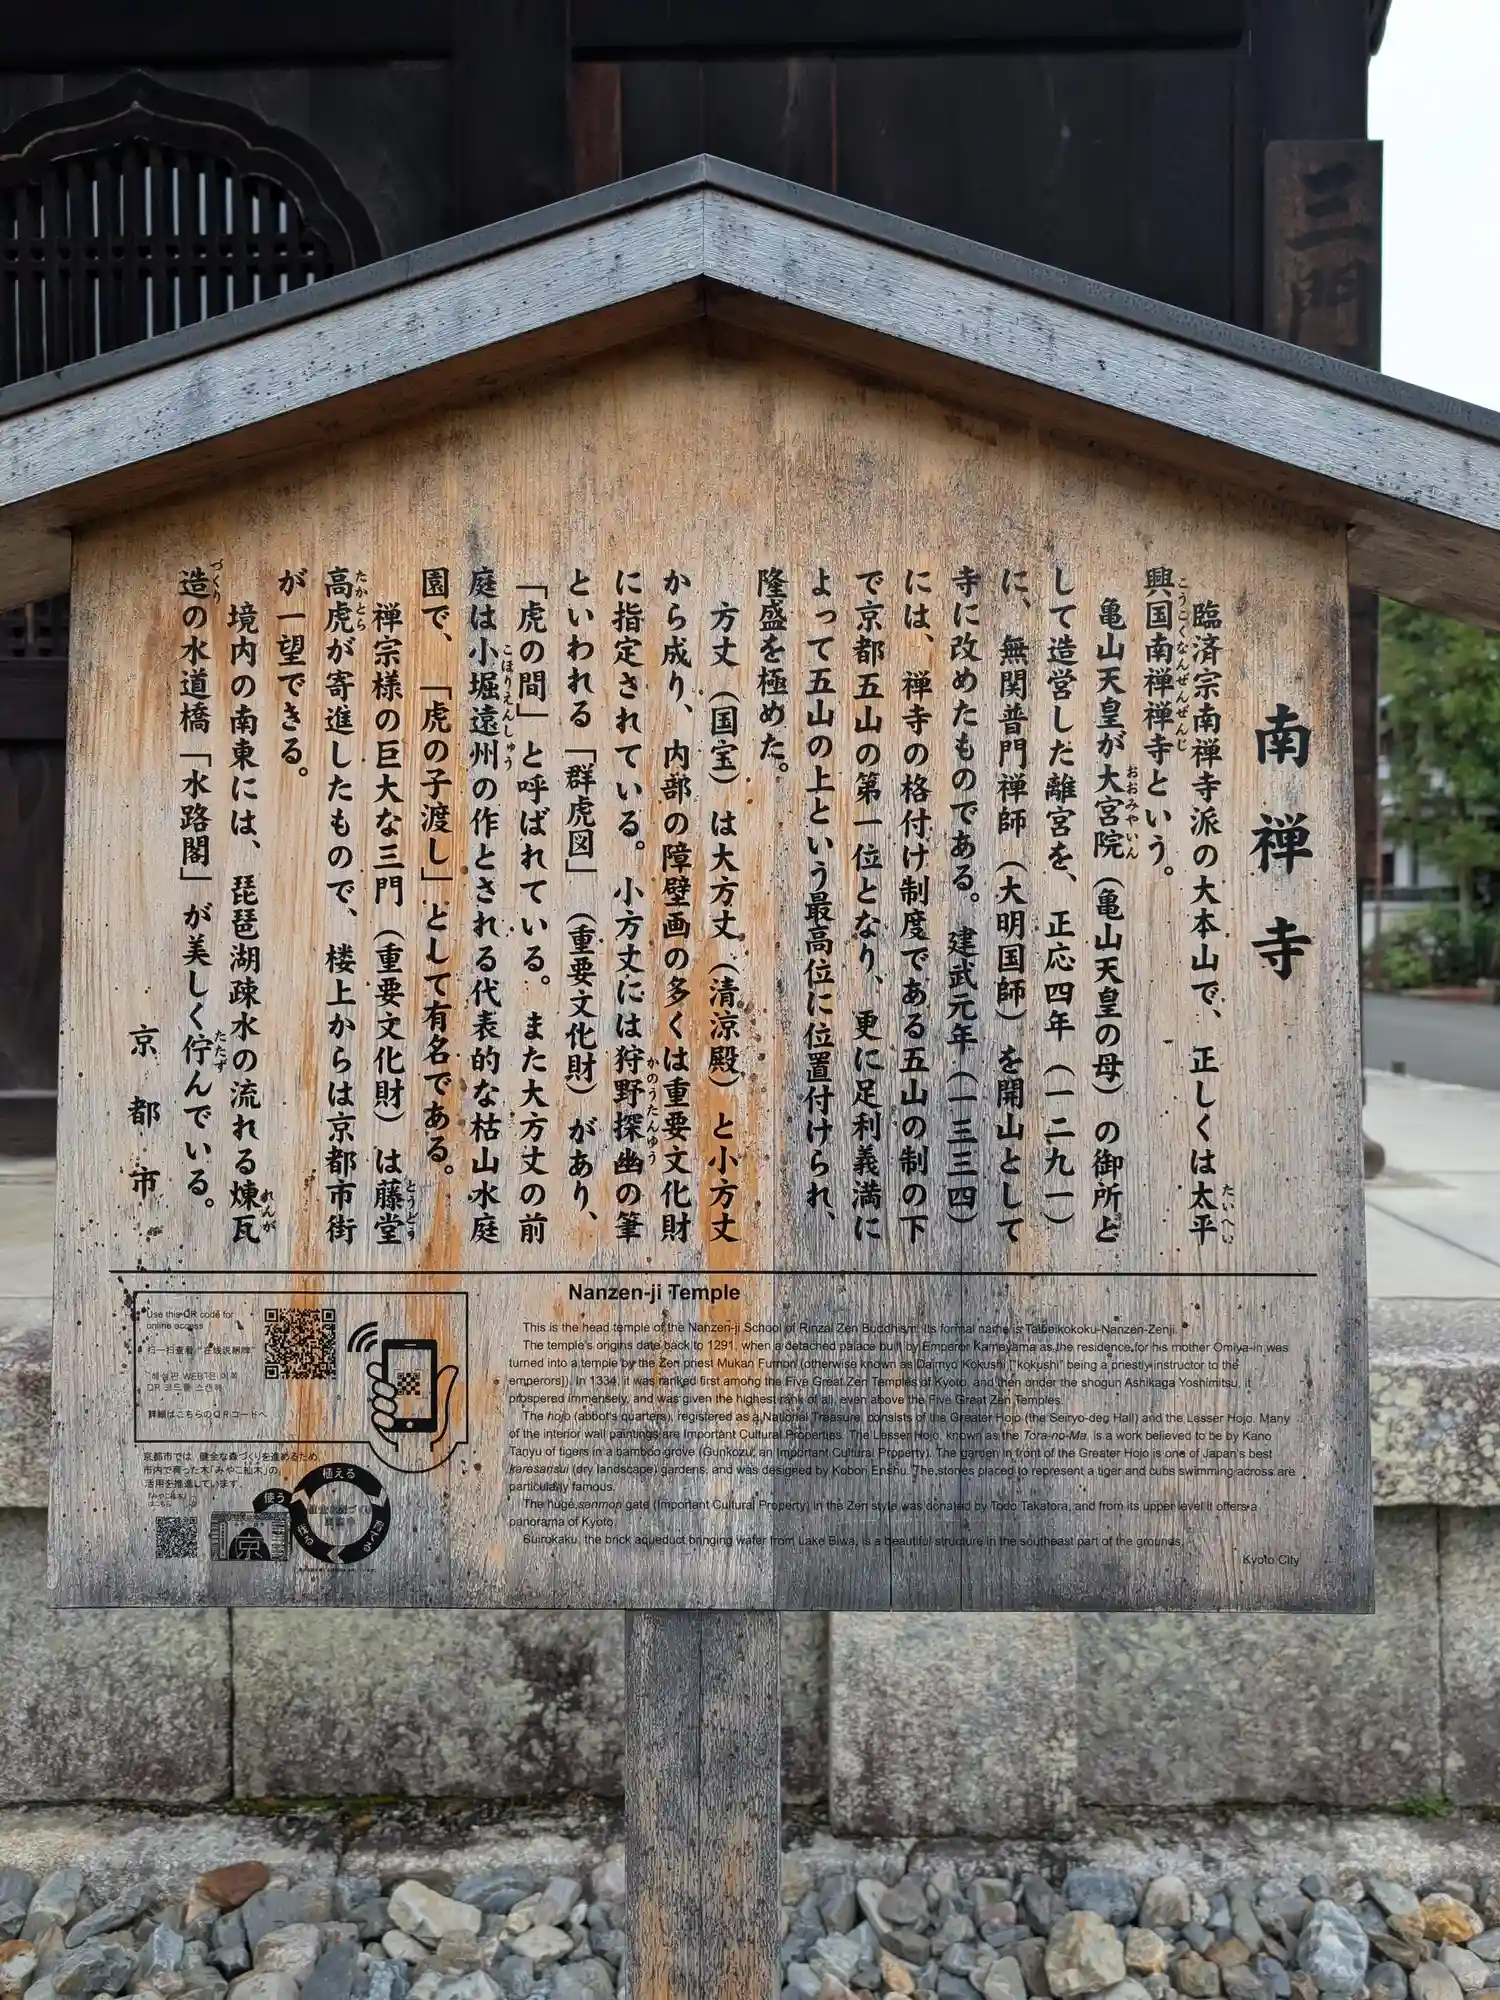 三門
南禅寺
臨済宗南禅寺派の大本山で、正しくは太平
興国南禅禅寺という。
亀山天皇が大宮院（亀山天皇の母）の御所と
して造営した離宮を、正応四年（一二九一）
に、無関普門禅師（大明国師）を開山として
寺に改めたものである。建武元年（一三三四）
には、禅寺の格付け制度である五山の制の下
で京都五山の第一位となり、更に足利義満に
よって五山の上という最高位に位置付けられ、
隆盛を極めた。
方丈（国宝）は大方丈（清涼殿）と小方丈
から成り、内部の障壁画の多くは重要文化財
に指定されている。小方丈には狩野探幽の筆
といわれる「群虎図」（重要文化財）があり、
「虎の間」と呼ばれている。また大方丈の前
庭は小堀遠州の作とされる代表的な枯山水庭
園で、「虎の子渡し」として有名である。
禅宗様の巨大な三門（重要文化財）は藤堂
高虎が寄進したもので、楼上からは京都市街
が一望できる。
境内の南東には、琵琶湖疎水の流れる煉瓦
造の水道橋「水路閣」が美しく佇んでいる。
京都市
たいへい
こうこくなんぜんぜんじ
おおみやいん
かのうたんゆう
こほりえんしゅう
とうどう
たかとら
れんが
づくり
たたず
Nanzen-ji Temple
This is the head temple of the Nanzen-ji School of Rinzai Zen Buddhism. Its formal name is Taiheikokoku-Nanzen-Zenji.
The temple's origins date back to 1291, when a detached palace built by Emperor Kameyama as the residence for his mother Omiya-in was
turned into a temple by the Zen priest Mukan Fumon (otherwise known as Daimyo Kokushi ["kokushi" being a priestly instructor to the
emperors]). In 1334, it was ranked first among the Five Great Zen Temples of Kyoto, and then under the shogun Ashikaga Yoshimitsu, it
prospered immensely, and was given the highest rank of all, even above the Five Great Zen Temples.
The hojo (abbot's quarters), registered as a National Treasure, consists of the Greater Hojo (the Seiryo-den Hall) and the Lesser Hojo. Many
of the interior wall paintings are Important Cultural Properties. The Lesser Hojo, known as the Tora-no-Ma, is a work believed to be by Kano
Tanyu of tigers in a bamboo grove (Gunkozu, an Important Cultural Property). The garden in front of the Greater Hojo is one of Japan's best
karesansui (dry landscape) gardens, and was designed by Kobori Enshu. The stones placed to represent a tiger and cubs swimming across are
particularly famous.
The huge sanmon gate (Important Cultural Property) in the Zen style was donated by Todo Takatora, and from its upper level it offers a
panorama of Kyoto.
Suirokaku, the brick aqueduct bringing water from Lake Biwa, is a beautiful structure in the southeast part of the grounds.
Kyoto City
Use this QR code for
online access
扫一扫查看“在线说明牌”
해설판 WEB은 이쪽
QR 코드를 스캔해
詳細はこちらのQRコードへ
京都市では、健全な森づくりを進めるため、
市内で育った木「みやこ杣木」の
活用を推進しています。
植える
育てる
伐る
使う
京